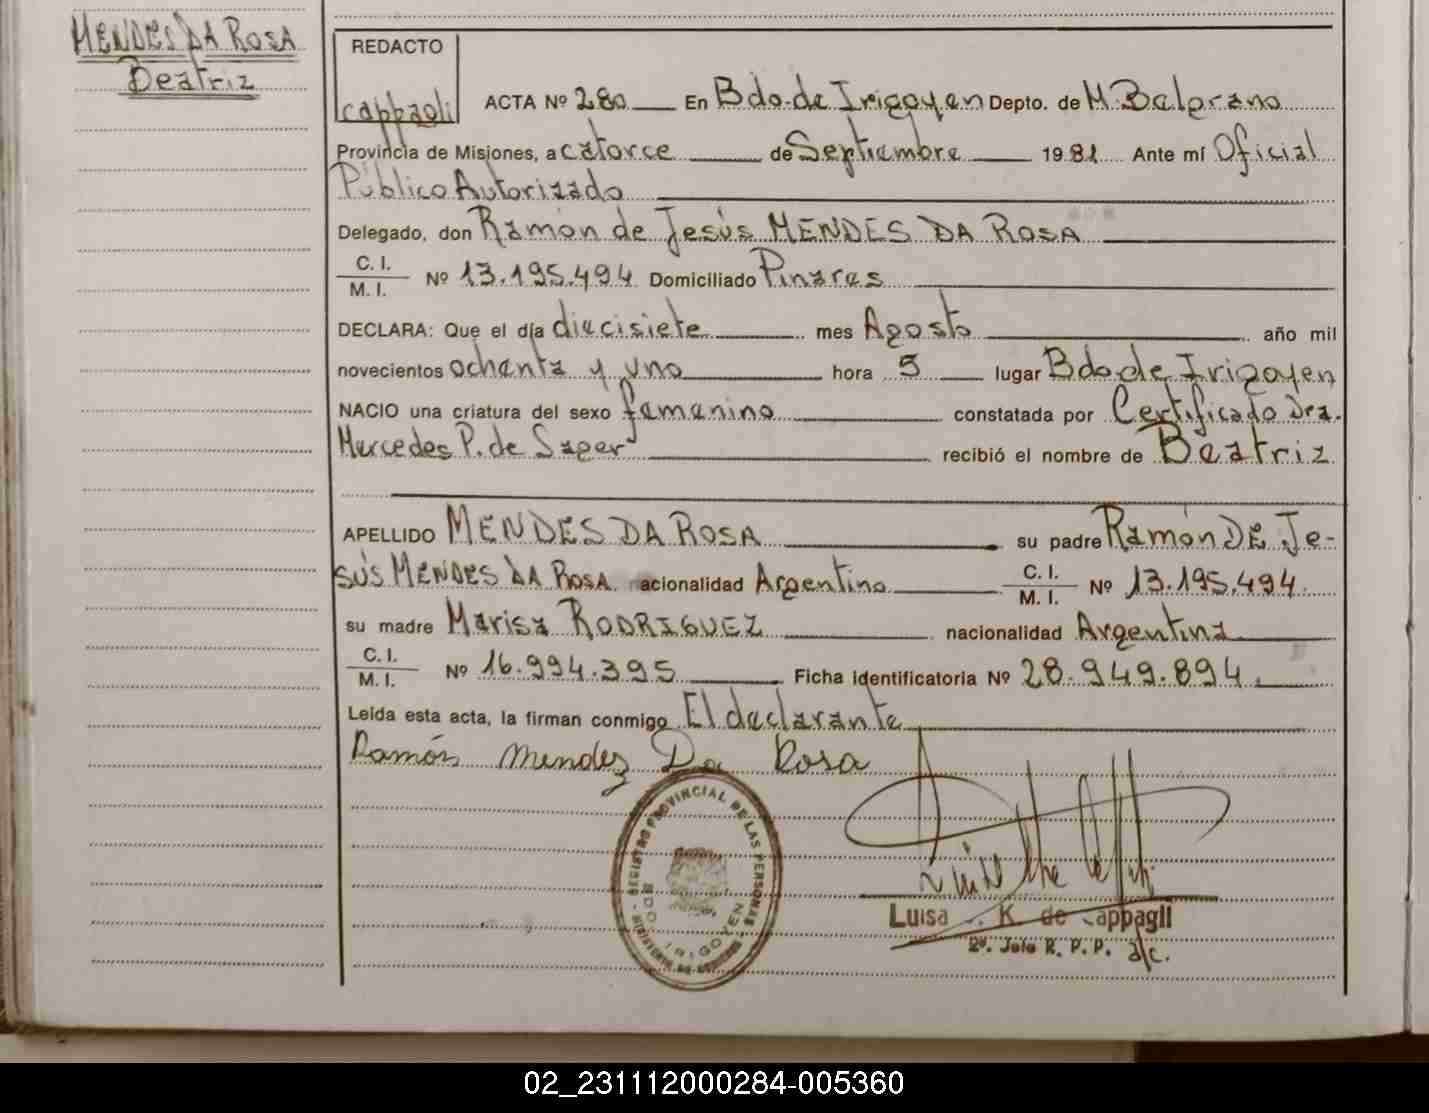 MENDES DA ROSA
Beatriz
REDACTO
cappagli
ACTA Nº 280 En Bdo. de Irigoyen Depto. de M. Belgrano
Provincia de Misiones, a catorce de Septiembre 1981 Ante mí Oficial
Público Autorizado
Delegado, don Ramón de Jesús MENDES DA ROSA
C. I.
M. I. Nº 13.195.494 Domiciliado Pinares
DECLARA: Que el día diecisiete mes Agosto año mil
novecientos ochenta y uno hora 5 lugar Bdo de Irigoyen
NACIO una criatura del sexo femenino constatada por Certificado Dra.
Mercedes P. de Sager recibió el nombre de Beatriz
APELLIDO MENDES DA ROSA su padre Ramón DE Je-
sús MENDES DA ROSA nacionalidad Argentino C. I. M. I. Nº 13.195.494.
su madre Marisa RODRIGUEZ nacionalidad Argentina
C. I.
M. I. Nº 16.994.395 Ficha identificatoria Nº 28.949.894.
Leída esta acta, la firman conmigo El declarante
Ramón Mendez Da Rosa
REGISTRO PROVINCIAL DE LAS PERSONAS
BDO. IRIGOYEN
Luisa K. de Cappagli
2º. Jefe R. P. P. a/c.
02_231112000284-005360